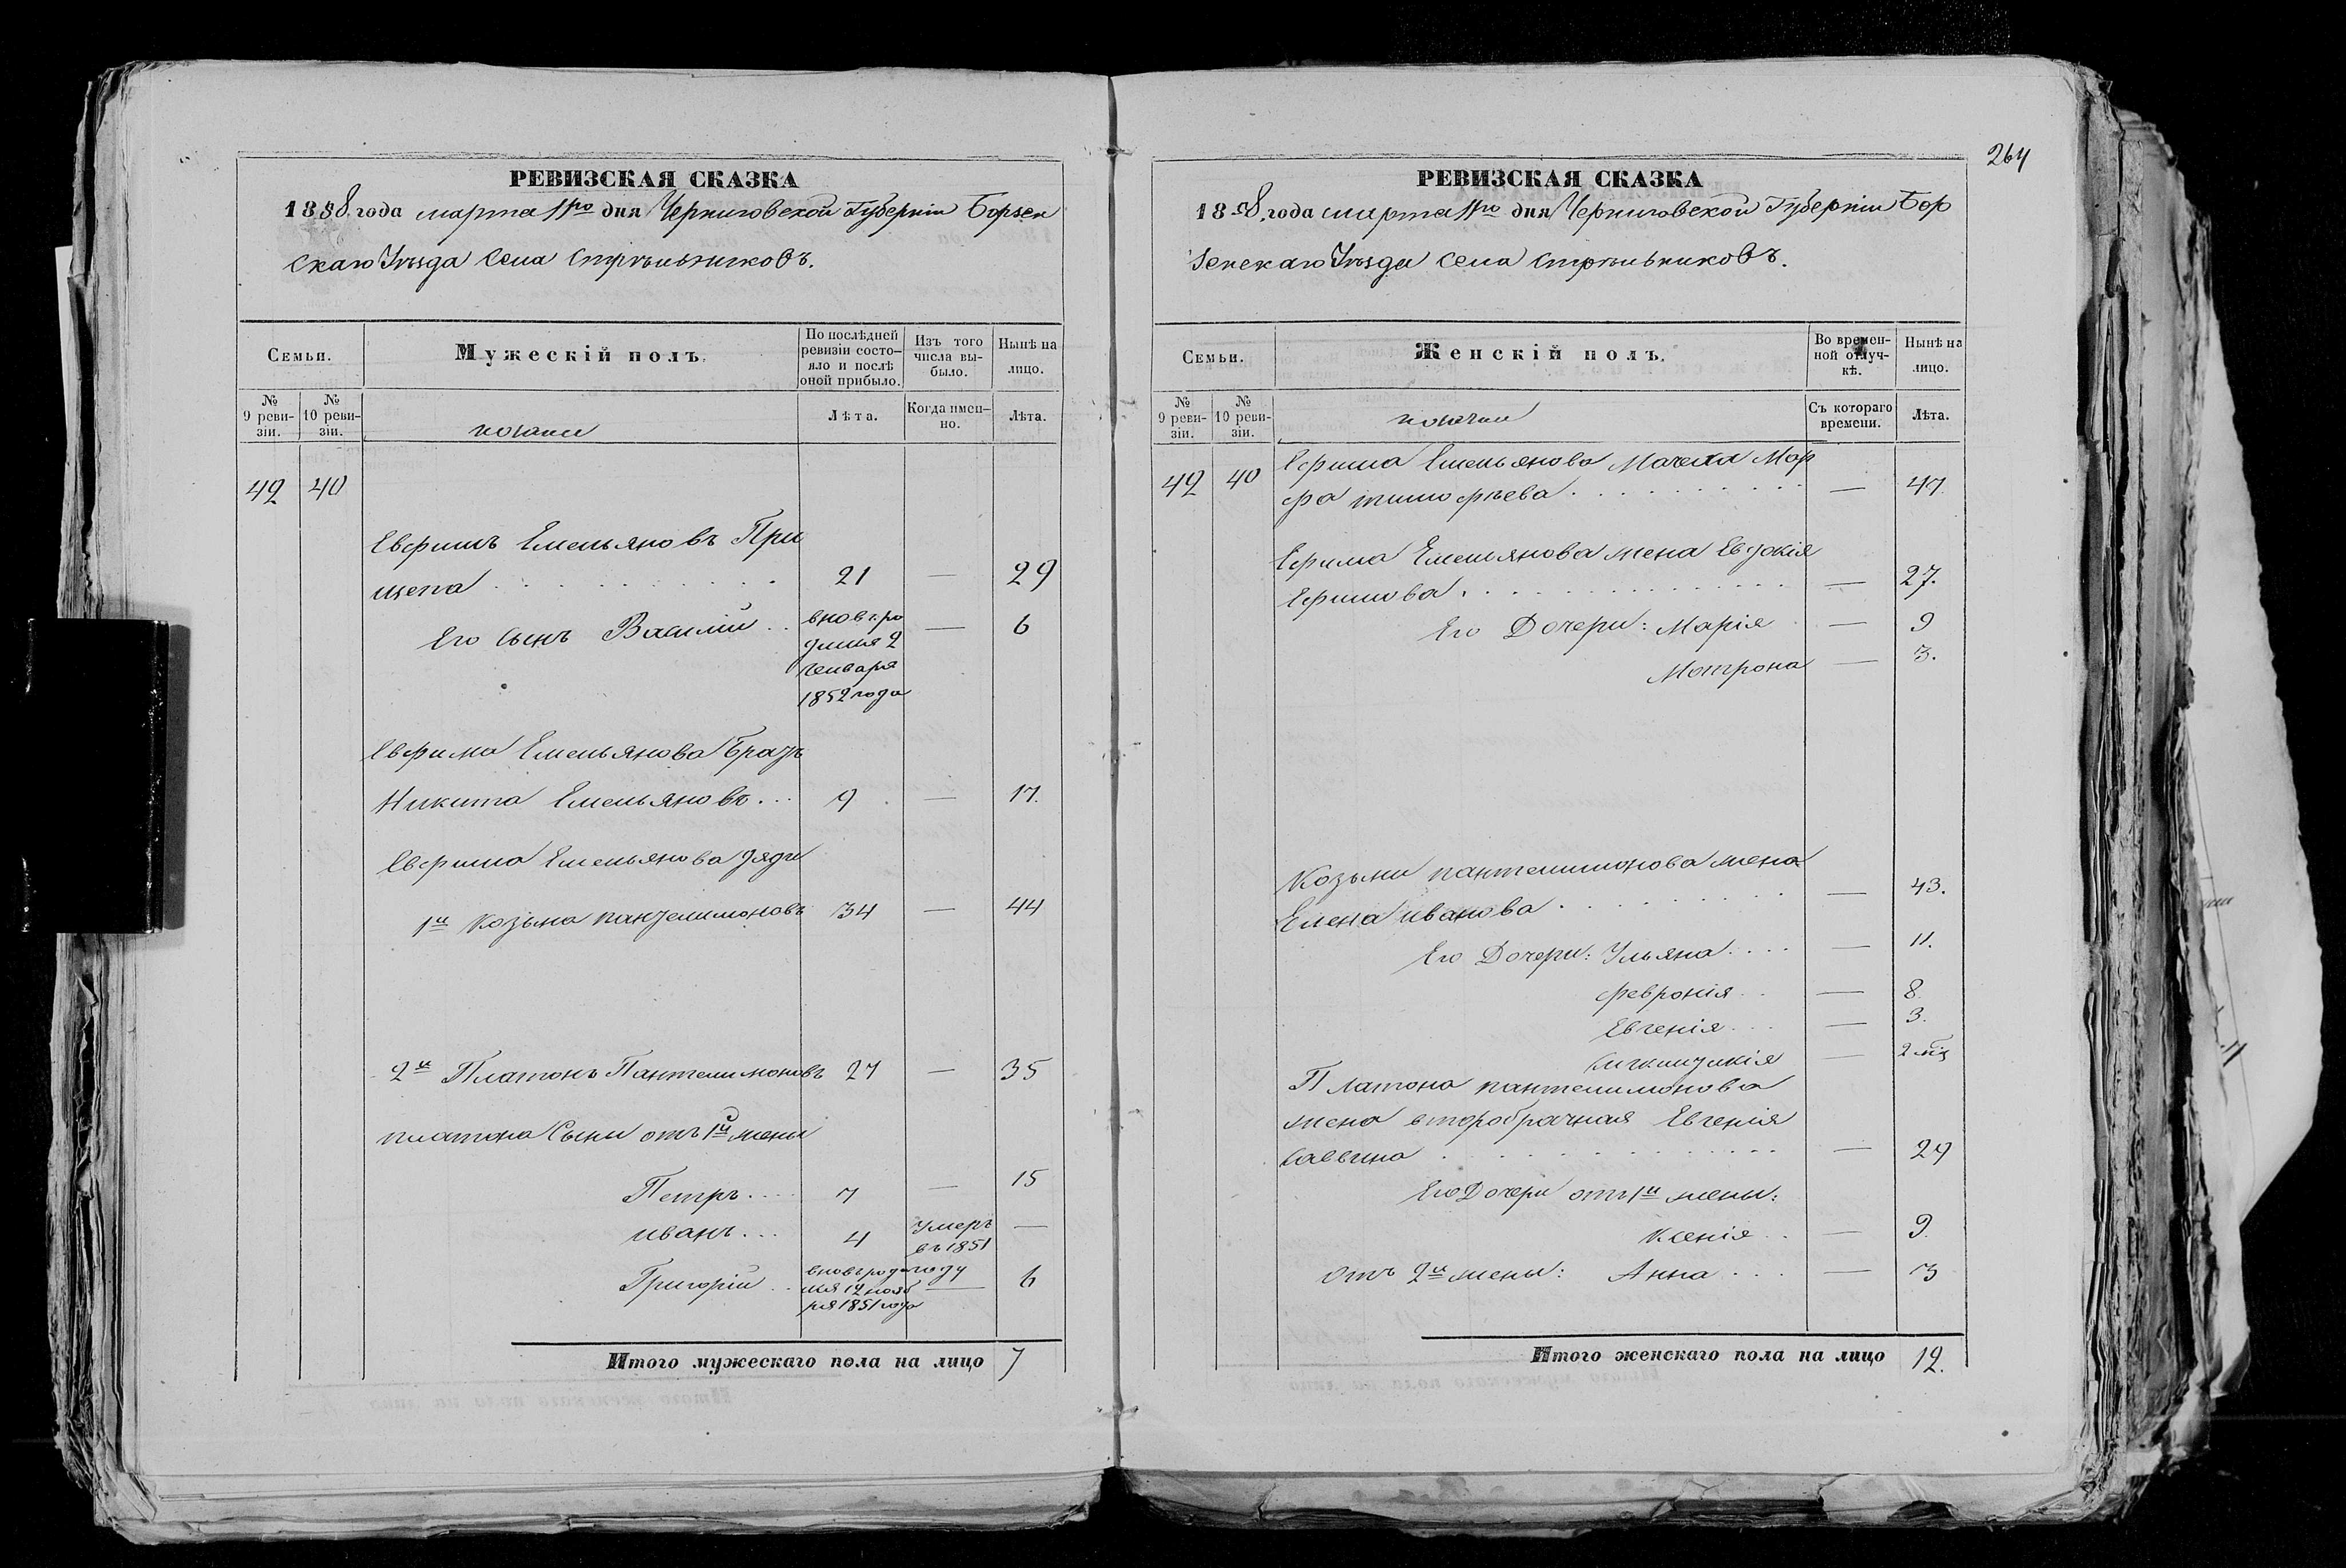 264
РЕВИЗСКАЯ СКАЗКА
1858 года марта 11го дня Черниговской Губерніи Борзен
скаго Уѣзда села Стрѣльниковъ.
Семьи.
Мужескій полъ.
По послѣдней ревизіи состо-
яло и послѣ оной прибыло.
Изъ того числа вы-
было.
Нынѣ на лицо.
№ 9 реви-
зіи.
№ 10 реви-
зіи.
козаки
Лѣта.
Когда имен-
но.
Лѣта.
42 40
Евфимъ Емельяновъ При
щепа . . . 21 — 29
Его сынъ Василій . . вновь ро — 6
дился 2
Генваря
1852 года
Евфима Емельянова братъ
Никита Емельяновъ . . . 9 — 17.
Евфима Емельянова дяди
1й Козьма Пантелимоновъ 34 — 44
2й Платонъ Пантелимоновъ 27 — 35
Платона Сыны отъ 1й жены
Петръ . . . 7 — 15
Иванъ . . . 4 умеръ —
въ 1851
году
Григорій . . вновь роди — 6
лся 12 нояб
ря 1851 года
Итого мужескаго пола на лицо 7
РЕВИЗСКАЯ СКАЗКА
1858 года марта 11го дня Черниговской Губерніи Бор
зенскаго Уѣзда села Стрѣльниковъ.
Семьи.
Женскій полъ.
Во времен-
ной отлуч-
кѣ.
Нынѣ на лицо.
№ 9 реви-
зіи.
№ 10 реви-
зіи.
козачки
Съ котораго времени.
Лѣта.
42 40 Ефима Емельянова Мачеха Мар
фа Тимофѣева . . . — 47
Ефима Емельянова жена Евдокія
Ефимова . . . — 27.
Его Дочери: Марія — 9
Мотрона — 3.
Козьмы Пантелимонова жена
Елена Иванова . . . — 43.
Его Дочери: Ульяна . . . — 11.
Февронія . . — 8.
Евгенія . . . — 3.
— 2 мѣс
Платона Пантелимонова
жена второбрачная Евгенія
Саввина . . . — 29
Его Дочери отъ 1й жены:
Ксенія . . — 9.
отъ 2й жены: Анна . . . — 3
Итого женскаго пола на лицо 12.